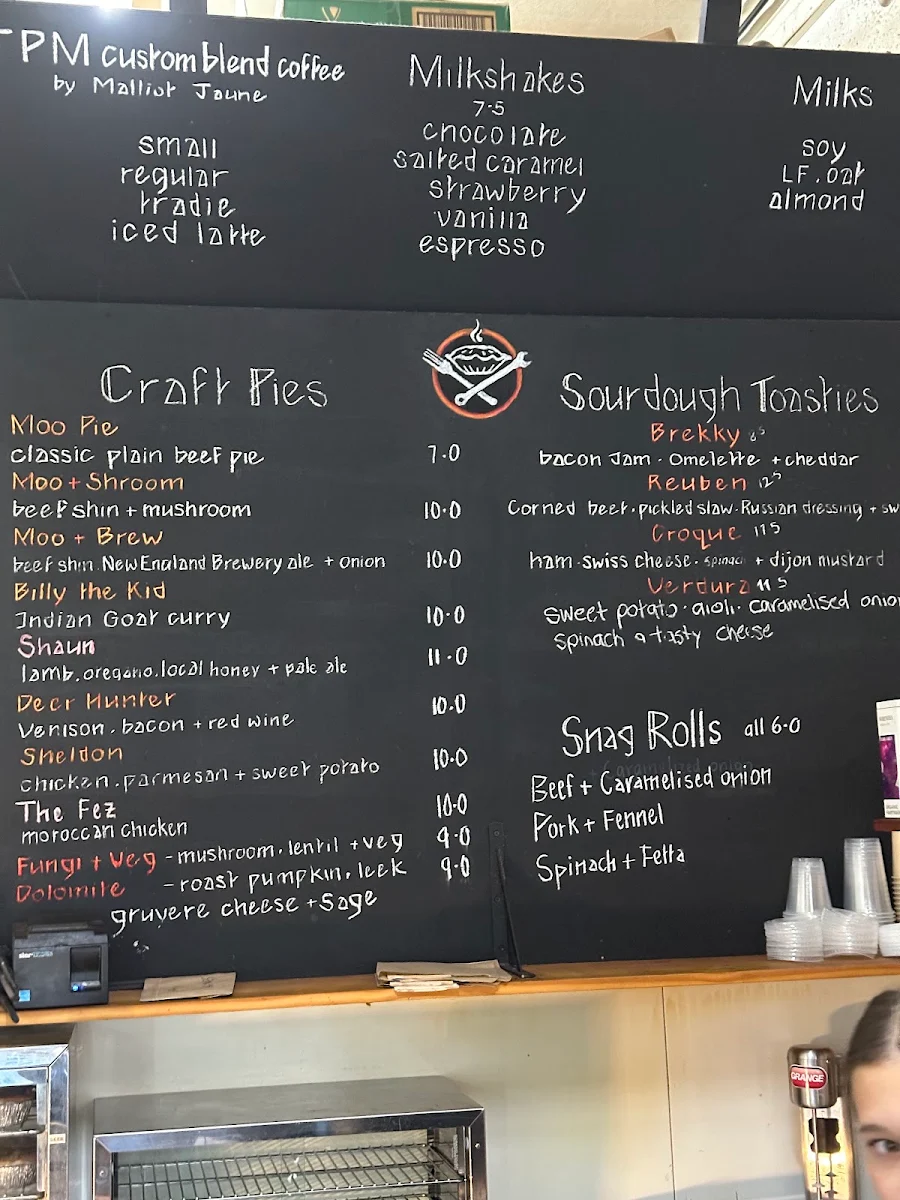 TPM custom blend coffee
by Malliot Jaune
small
regular
tradie
iced latte
Milkshakes
7.5
chocolate
salted caramel
strawberry
vanilla
espresso
Milks
soy
LF. oat
almond
Craft Pies
Moo Pie
classic plain beef pie 7.0
Moo + Shroom
beef shin + mushroom 10.0
Moo + Brew
beef shin. New England Brewery ale + onion 10.0
Billy the Kid
Indian Goat curry 10.0
Shaun
lamb. oregano. local honey + pale ale 11.0
Deer Hunter
Venison. bacon + red wine 10.0
Sheldon
chicken. parmesan + sweet potato 10.0
The Fez 10.0
moroccan chicken
Fungi + Veg - mushroom. lentil + veg 9.0
Dolomite - roast pumpkin. leek 9.0
gruyere cheese + Sage
Sourdough Toasties
Brekky
bacon Jam. Omelette + cheddar
Reuben 12.5
Corned beef. pickled slaw. Russian dressing + sw
Croque 11.5
ham. swiss cheese. spinach + dijon mustard
Verdura 11.5
sweet potato. aioli. caramelised onio
spinach + tasty cheese
Snag Rolls all 6.0
Beef + Caramelised onion
Pork + Fennel
Spinach + Fetta
star
GRANGE